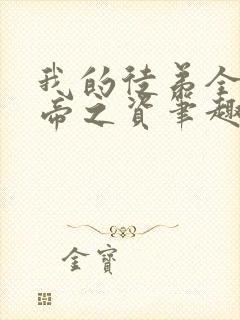 我的徒弟全
帝之资笔趣
金寶